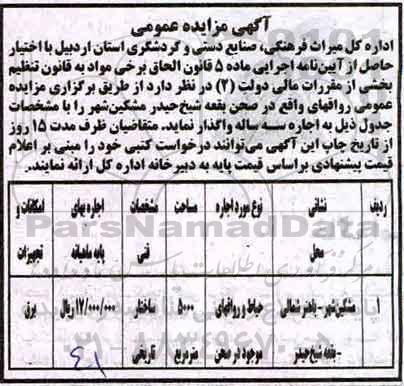 آگهی مزایده عمومی
اداره کل میراث فرهنگی، صنایع دستی و گردشگری استان اردبیل با اختیار
حاصل از آیین‌نامه اجرایی ماده ۵ قانون الحاق برخی مواد به قانون تنظیم
بخشی از مقررات مالی دولت (۲) در نظر دارد از طریق برگزاری مزایده
عمومی رواقهای واقع در صحن بقعه شیخ‌حیدر مشگین‌شهر را با مشخصات
جدول ذیل به اجاره سه ساله واگذار نماید. متقاضیان ظرف مدت ۱۵ روز
از تاریخ چاپ این آگهی می‌توانند درخواست کتبی خود را مبنی بر اعلام
قیمت پیشنهادی براساس قیمت پایه به دبیرخانه اداره کل ارائه نمایند.
ردیف نشانی نوع مورد اجاره مساحت مشخصات اجاره بهای امکانات و
محل - فنی پایه ماهیانه تجهیزات
۱ مشگین‌شهر - باهنر شمالی حیاط و رواقهای ۵۰۰۰ ساختار ۱۷/۰۰۰/۰۰۰ ریال برق
- بقعه شیخ‌حیدر موجود در صحن مترمربع تاریخی
ParsNamadData